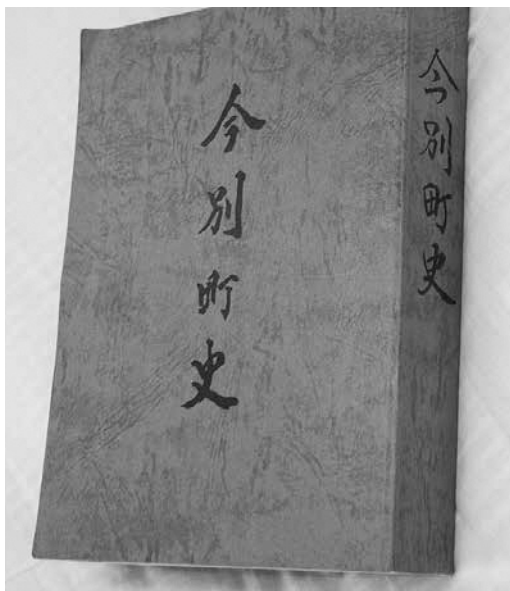 今別町史
今別町史